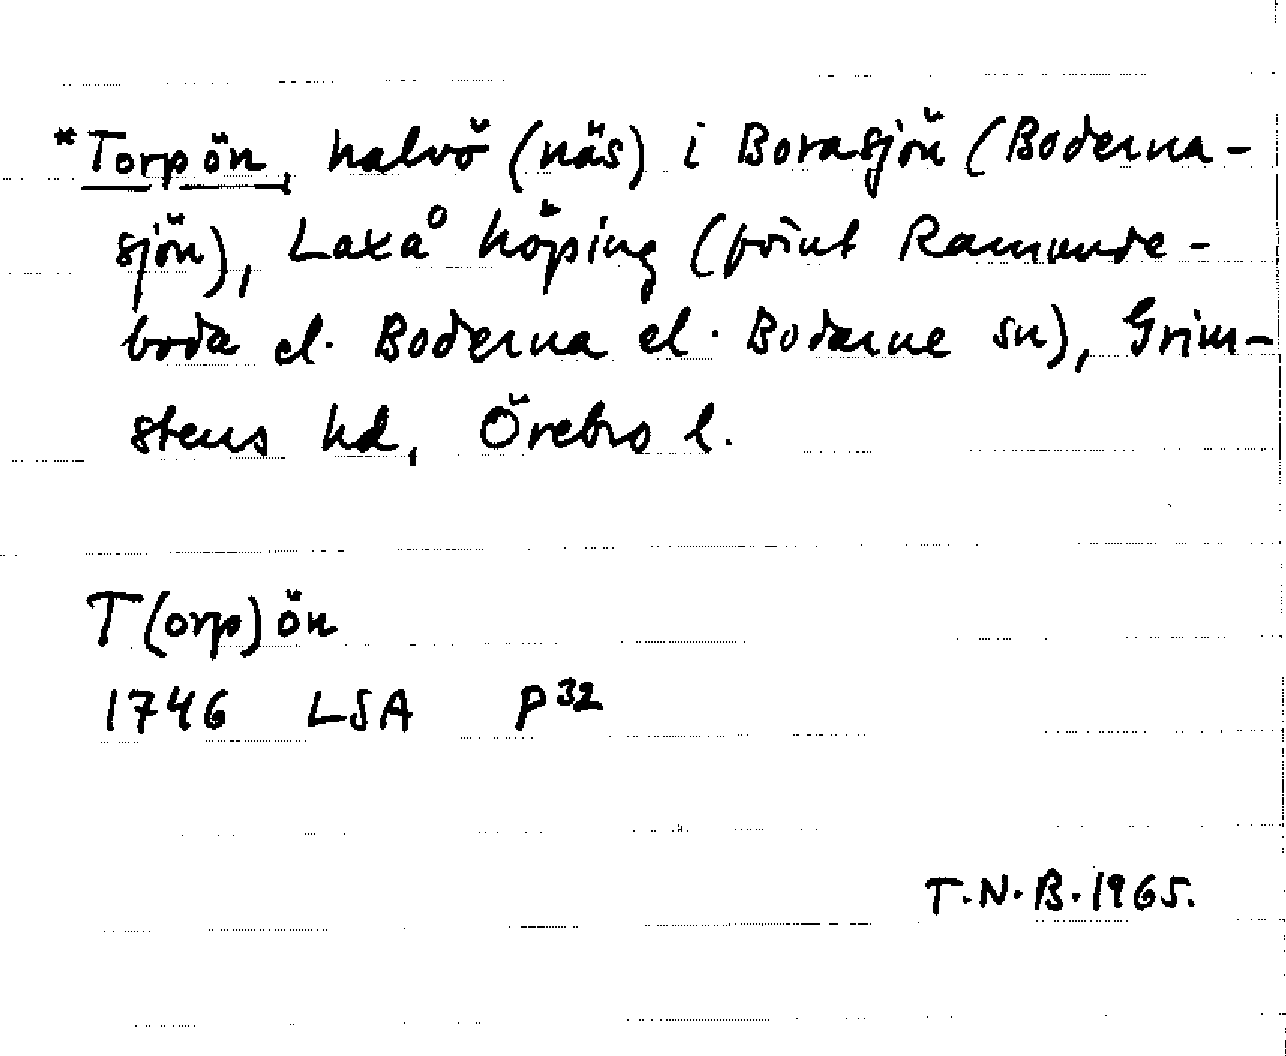 *Torpön, halvö (näs) i Borasjön (Boderna-
sjön), Laxå köping (förut Ramunde-
boda el. Boderna el. Bodarne sn), Grim-
stens hd, Örebro l.
T(orp)ön
1746 LSA P32
T.N.B.1965.